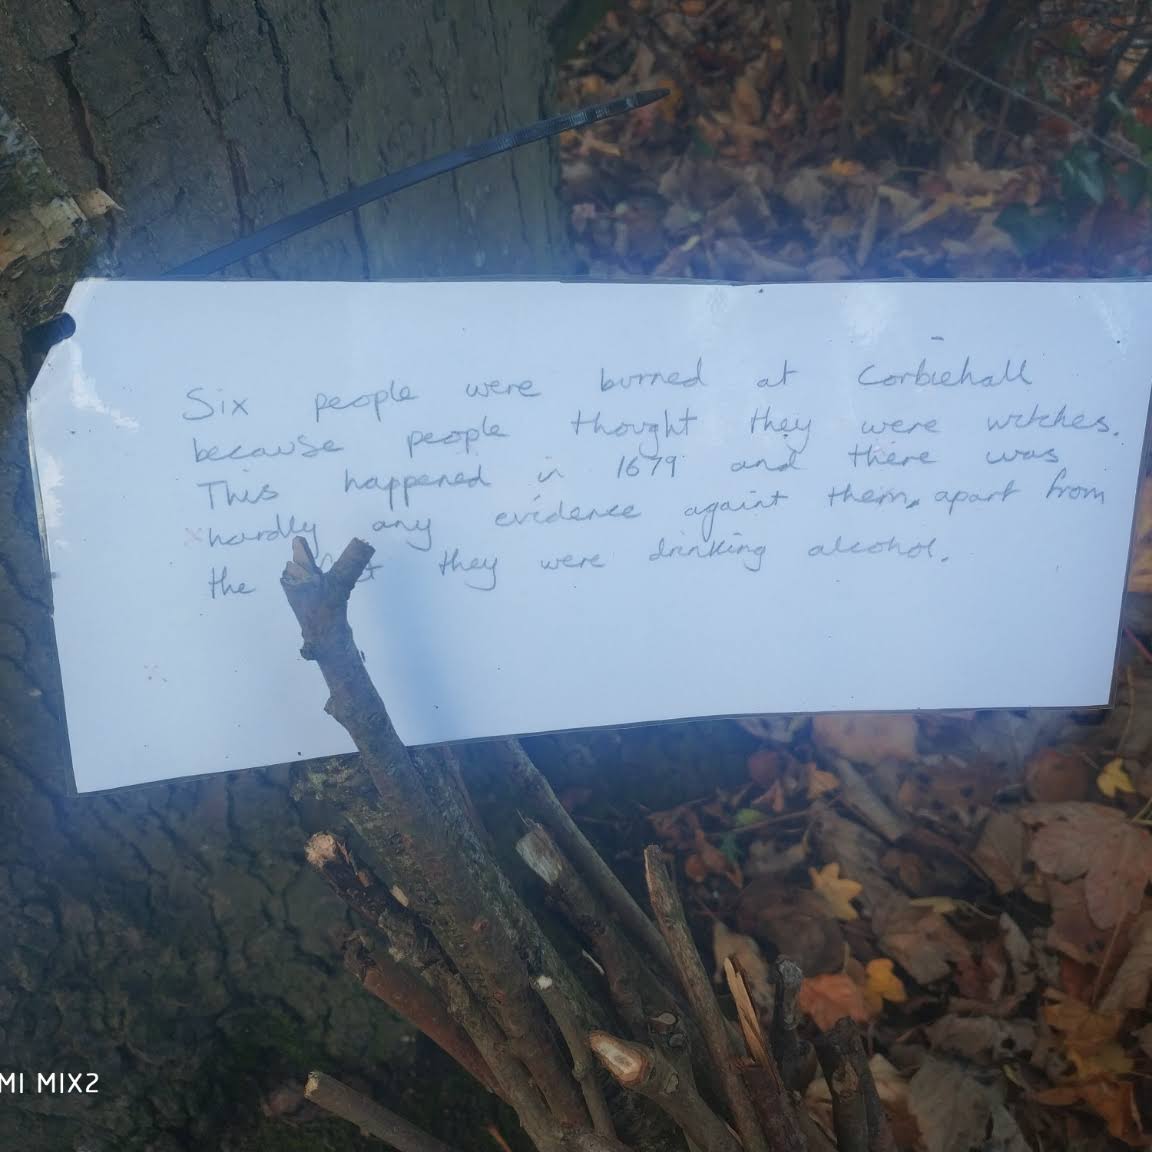 Six people were burned at Corbiehall
because people thought they were witches.
This happened in 1679 and there was
hardly any evidence againt them, apart from
the they were drinking alcohol.
MI MIX2